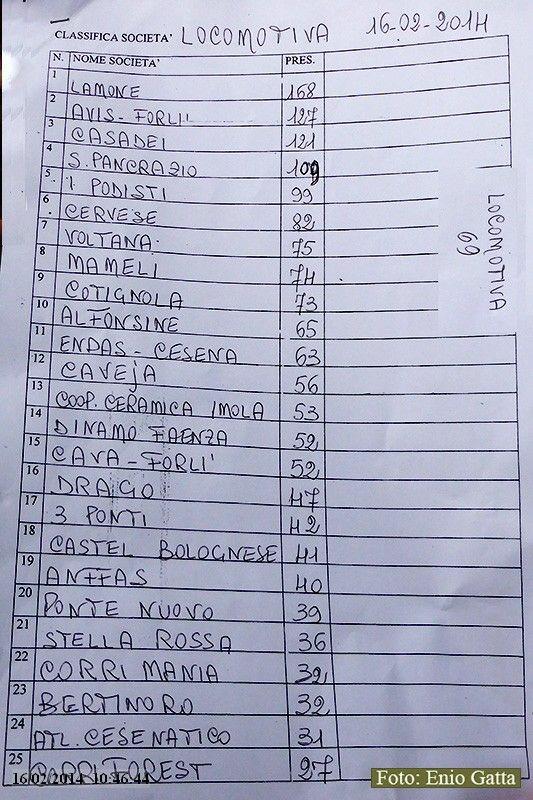 CLASSIFICA SOCIETA' LOCOMOTIVA 16-02-2014
N. NOME SOCIETA' PRES.
1 LAMONE 168
2 AVIS-FORLI' 127
3 CASADEI 121
4 S. PANCRAZIO 109
5 1 PODISTI 99
6 CERVESE 82
7 VOLTANA 75
8 MAMELI 74
9 COTIGNOLA 73
10 ALFONSINE 65
11 ENDAS - CESENA 63
12 CAVEJA 56
13 COOP. CERAMICA IMOLA 53
14 DINAMO FAENZA 52
15 CAVA-FORLI' 52
16 DRAGO 47
17 3 PONTI 42
18 CASTEL BOLOGNESE 41
19 ANFFAS 40
20 PONTE NUOVO 39
21 STELLA ROSSA 36
22 CORRI MANIA 32
23 BERTINORO 32
24 ATL. CESENATICO 31
25 CORRIFOREST 27
LOCOMOTIVA
69
16/02/2014 10:46:44
Foto: Enio Gatta